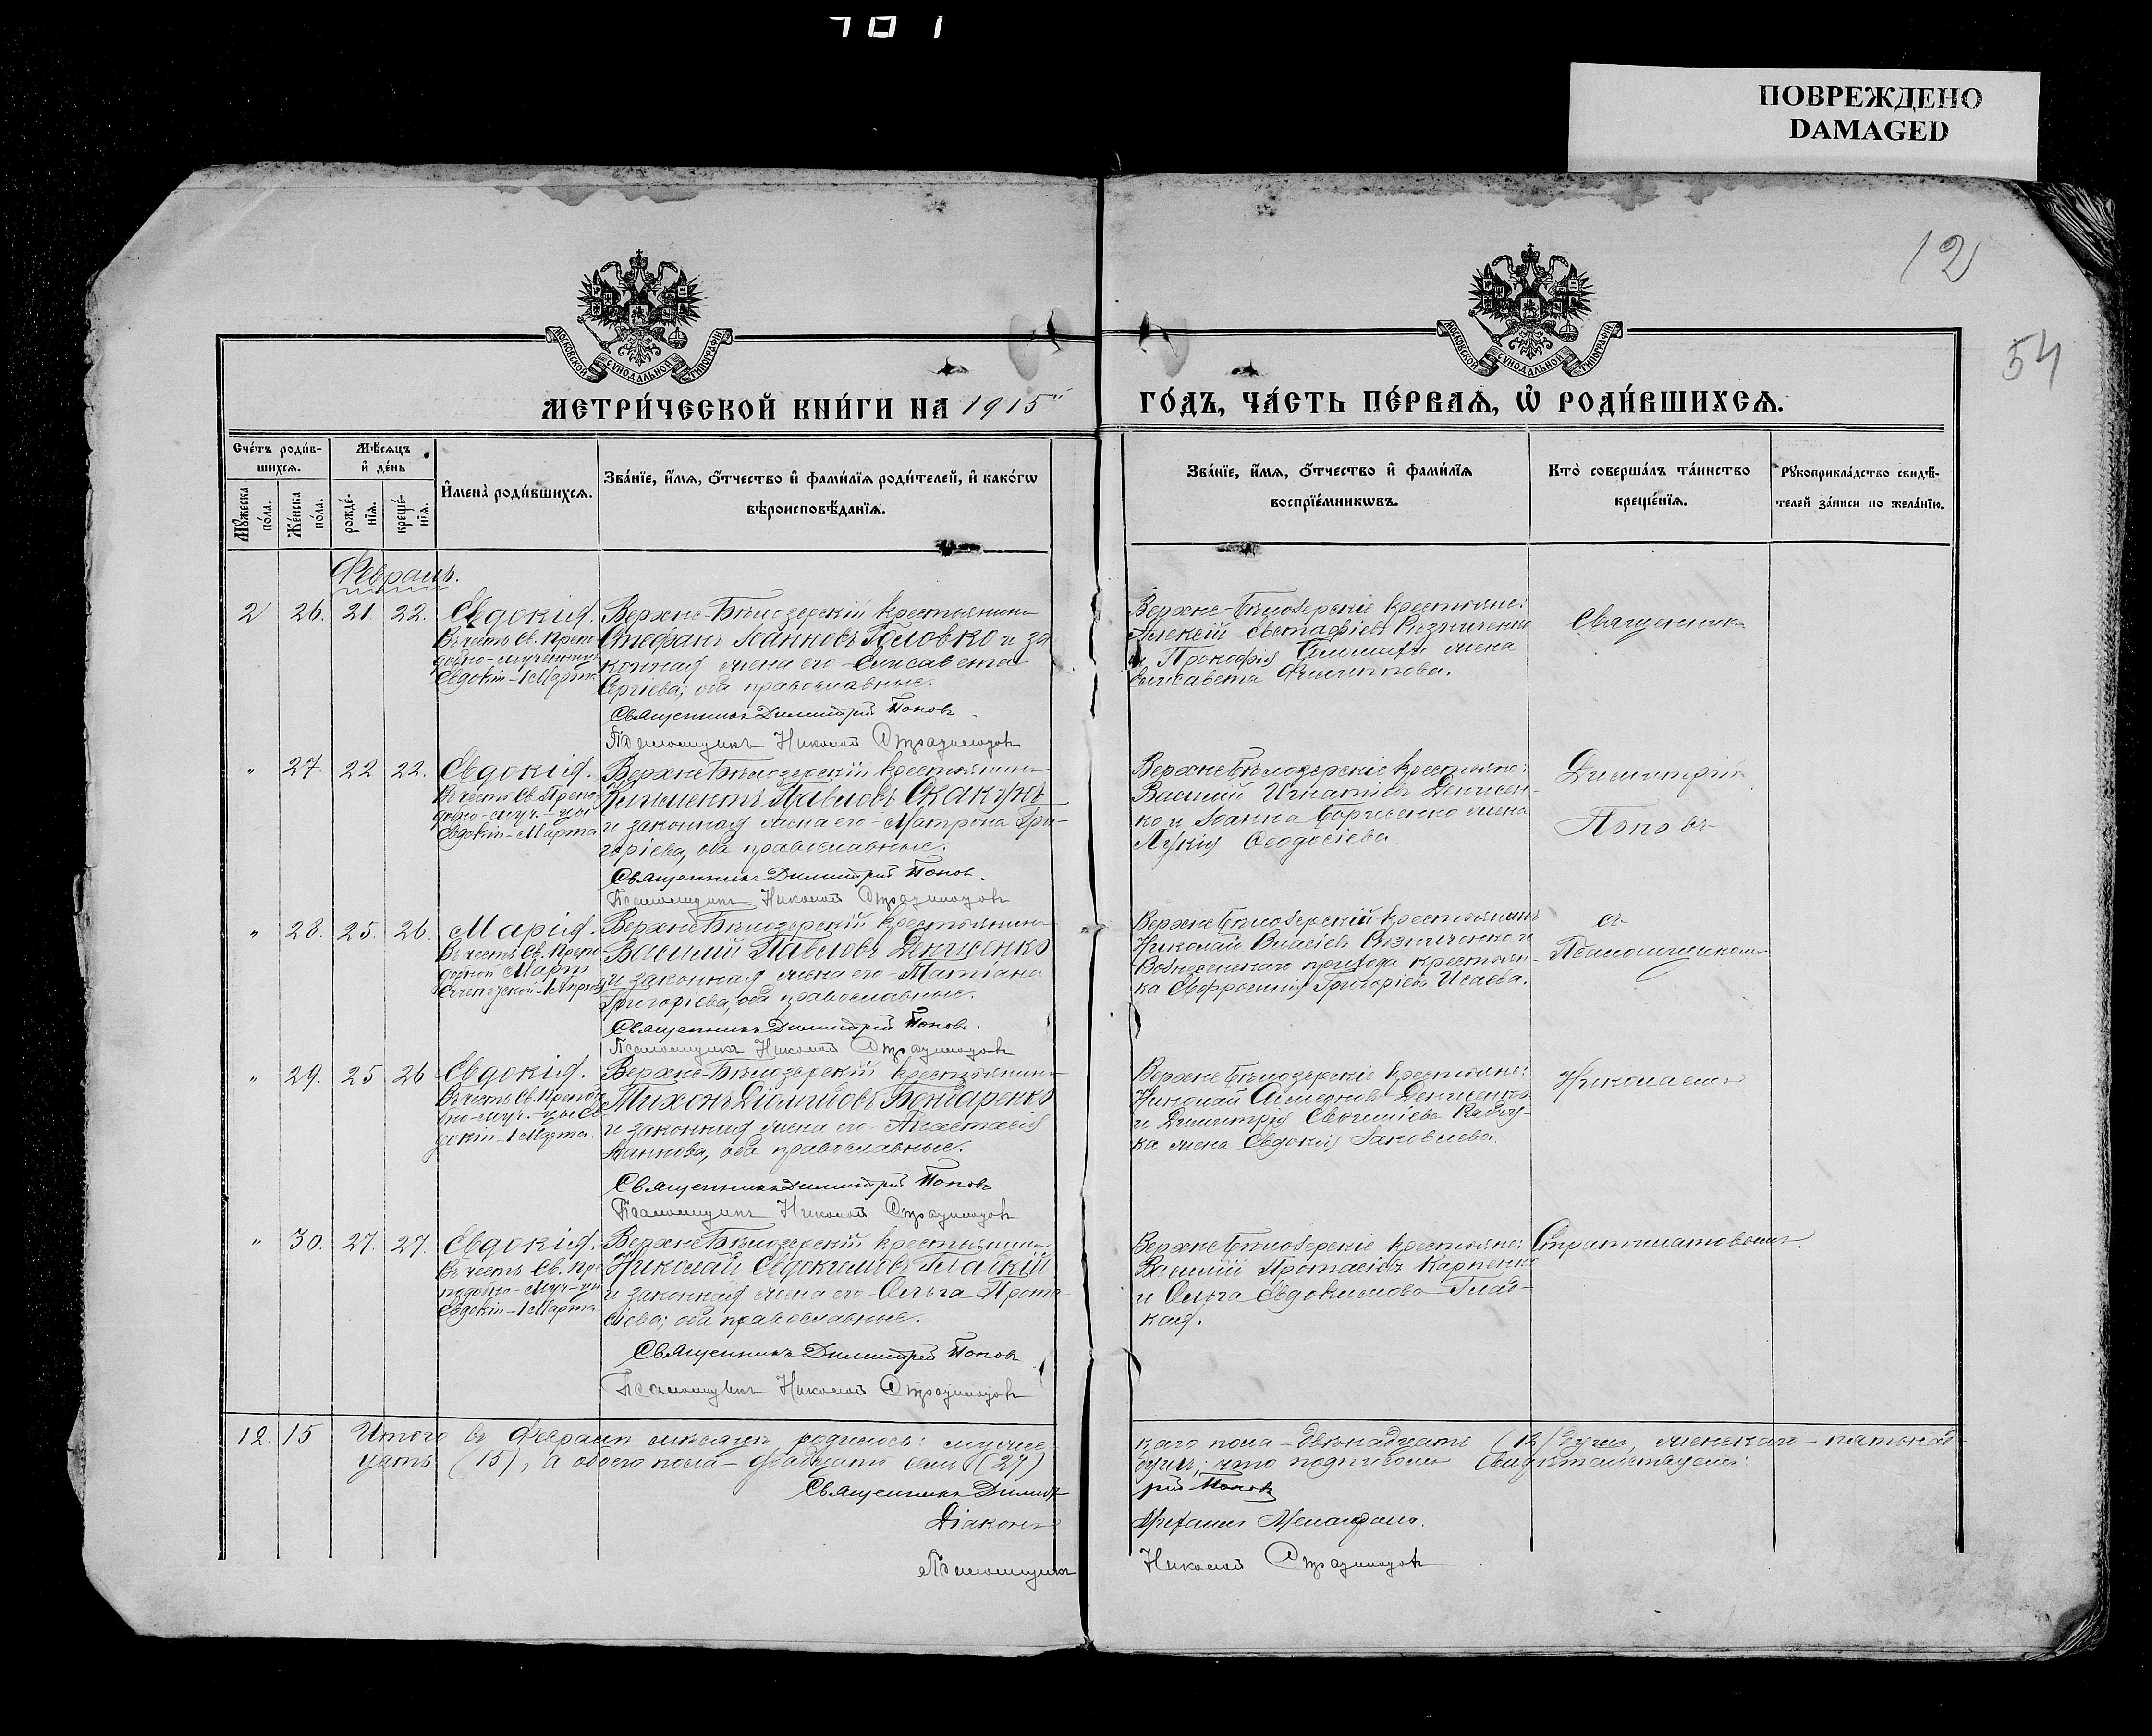 ПОВРЕЖДЕНО
DAMAGED
12
54
МОСКОВСКОЙ СѴНОДАЛЬНОЙ ТИПОГРАФІИ
МОСКОВСКОЙ СѴНОДАЛЬНОЙ ТИПОГРАФІИ
МЕТРИ́ЧЕСКОЙ КНИ́ГИ НА 1915
ГО́ДЪ, ЧА́СТЬ ПЕ́РВАѦ, Ѡ҆ РОДИ́ВШИХСѦ.
Сче́тъ роди́в-
шихсѧ.
Мѣ́сѧцъ
и҆ де́нь
Мꙋ́жеска
по́ла.
Же́нска
по́ла.
рожде́-
нїѧ.
креще́-
нїѧ.
И҆мена̀ роди́вшихсѧ.
Зва́нїе, и҆́мѧ, ѻ҆́тчество и҆ фами́лїѧ роди́телей, и҆ како́гѡ
вѣроисповѣ́данїѧ.
Зва́нїе, и҆́мѧ, ѻ҆́тчество и҆ фами́лїѧ
воспрїе́мникѡвъ.
Кто̀ соверша́лъ та́инство
креще́нїѧ.
Рꙋкоприкла́дство свидѣ́-
телей за́писи по жела́нїю.
Февраль.
26. 21 22. Евдокія.
Въ честь Св. Препо-
добно-мученицы
Евдокіи - 1 Марта
Верхне-Бѣлозерскій крестьянинъ
Стефанъ Іоанновъ Головко и за
конная жена его - Елисавета
Сергіева, оба православные.
Священникъ Димитрій Поповъ
Псаломщикъ Николай Стратилатовъ
Верхне-Бѣлозерскіе крестьяне:
Алексій Евстафіевъ Резниченко
и Прокофія жена
Елисавета Филиппова.
Священникъ
" 27. 22 22. Евдокія.
Въ честь Св. Препо-
добно-муч-цы
Евдокіи - Марта
Верхне Бѣлозерскій крестьянинъ
Климентъ Павловъ Скакунъ
и законная жена его - Матрона Гри-
горіева, оба православные.
Священникъ Димитрій Поповъ.
Псаломщикъ Николай Стратилатовъ
Верхне Бѣлозерскіе крестьяне:
Василій Игнатіевъ Денисен-
ко и Іоанна Борисенко жена
Лукія Ѳеодосіева.
Димитрій
Поповъ
" 28. 25. 26. Марія.
Въ честь Св. Препо-
добной Маріи
Египетской - 1 Апрѣля
Верхне Бѣлозерскій крестьянинъ
Василій Павловъ
и законная жена его - Татіана
Григоріева, оба православные.
Священникъ Димитрій Поповъ.
Псаломщикъ Николай Стратилатовъ
Верхне Бѣлозерскій крестьянинъ
Николай Власіевъ Резниченко и
Вознесенскаго прихода крестьян-
ка Евфросинія Григоріева Исаева.
съ
Псаломщикомъ
" 29. 25 26 Евдокія.
Въ честь Св. Преподоб
но-муч-цы Ев
докіи - 1 Марта.
Верхне-Бѣлозерскій крестьянинъ
Тихонъ Даміановъ Бондаренко
и законная жена его - Анастасія
Іоаннова, оба православные.
Священникъ Димитрій Поповъ
Псаломщикъ Николай Стратилатовъ
Верхне Бѣлозерскіе крестьяне:
Николай Симеоновъ Денисенко
и Димитрія Евфиміева
ка жена Евдокія Іаковлева.
Николаемъ
" 30. 27. 27. Евдокія.
Въ честь Св. Пре
подобно-муч-цы
Евдокіи - 1 Марта.
Верхне Бѣлозерскій крестьянинъ
Николай Евдокимовъ Гладкій
и законная жена его - Ольга Прота-
сіева, оба православные.
Священникъ Димитрій Поповъ
Псаломщикъ Николай Стратилатовъ
Верхне Бѣлозерскіе крестьяне:
Василій Протасіевъ Карпенко
и Ольга Евдокимова Глад-
кая.
Стратилатовымъ.
12. 15 Итого въ Февралѣ мѣсяцѣ родилось: мужес-
каго пола - двѣнадцать (12) душъ, женскаго - пятьнад
цать (15), а обоего пола - двадцать семь (27)
душъ; что подписомъ свидѣтельствуемъ:
Священникъ Димит
рій Поповъ
Діаконъ
Псаломщикъ
Николай Стратилатовъ